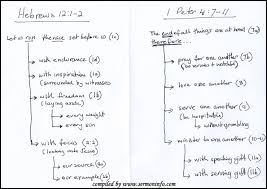 Hebrews 12:1-2
Let us run the race set before us (1e)
with endurance (1d)
with inspiration (1a)
(surrounded by witnesses
with freedom (1b)
(laying aside)
every weight
every sin
with focus (2a)
(looking unto Jesus)
our source (2b)
our example (2c)
1 Peter 4:7-11
The end of all things are at hand (7a)
therefore...
pray for one another (7b)
(be serious + watchful)
love one another (8)
serve one another (9)
(be hospitable)
without grumbling
minister to one another (10-11)
with speaking gift (11a)
with serving gift (11b)
compiled by www.sermoninfo.com